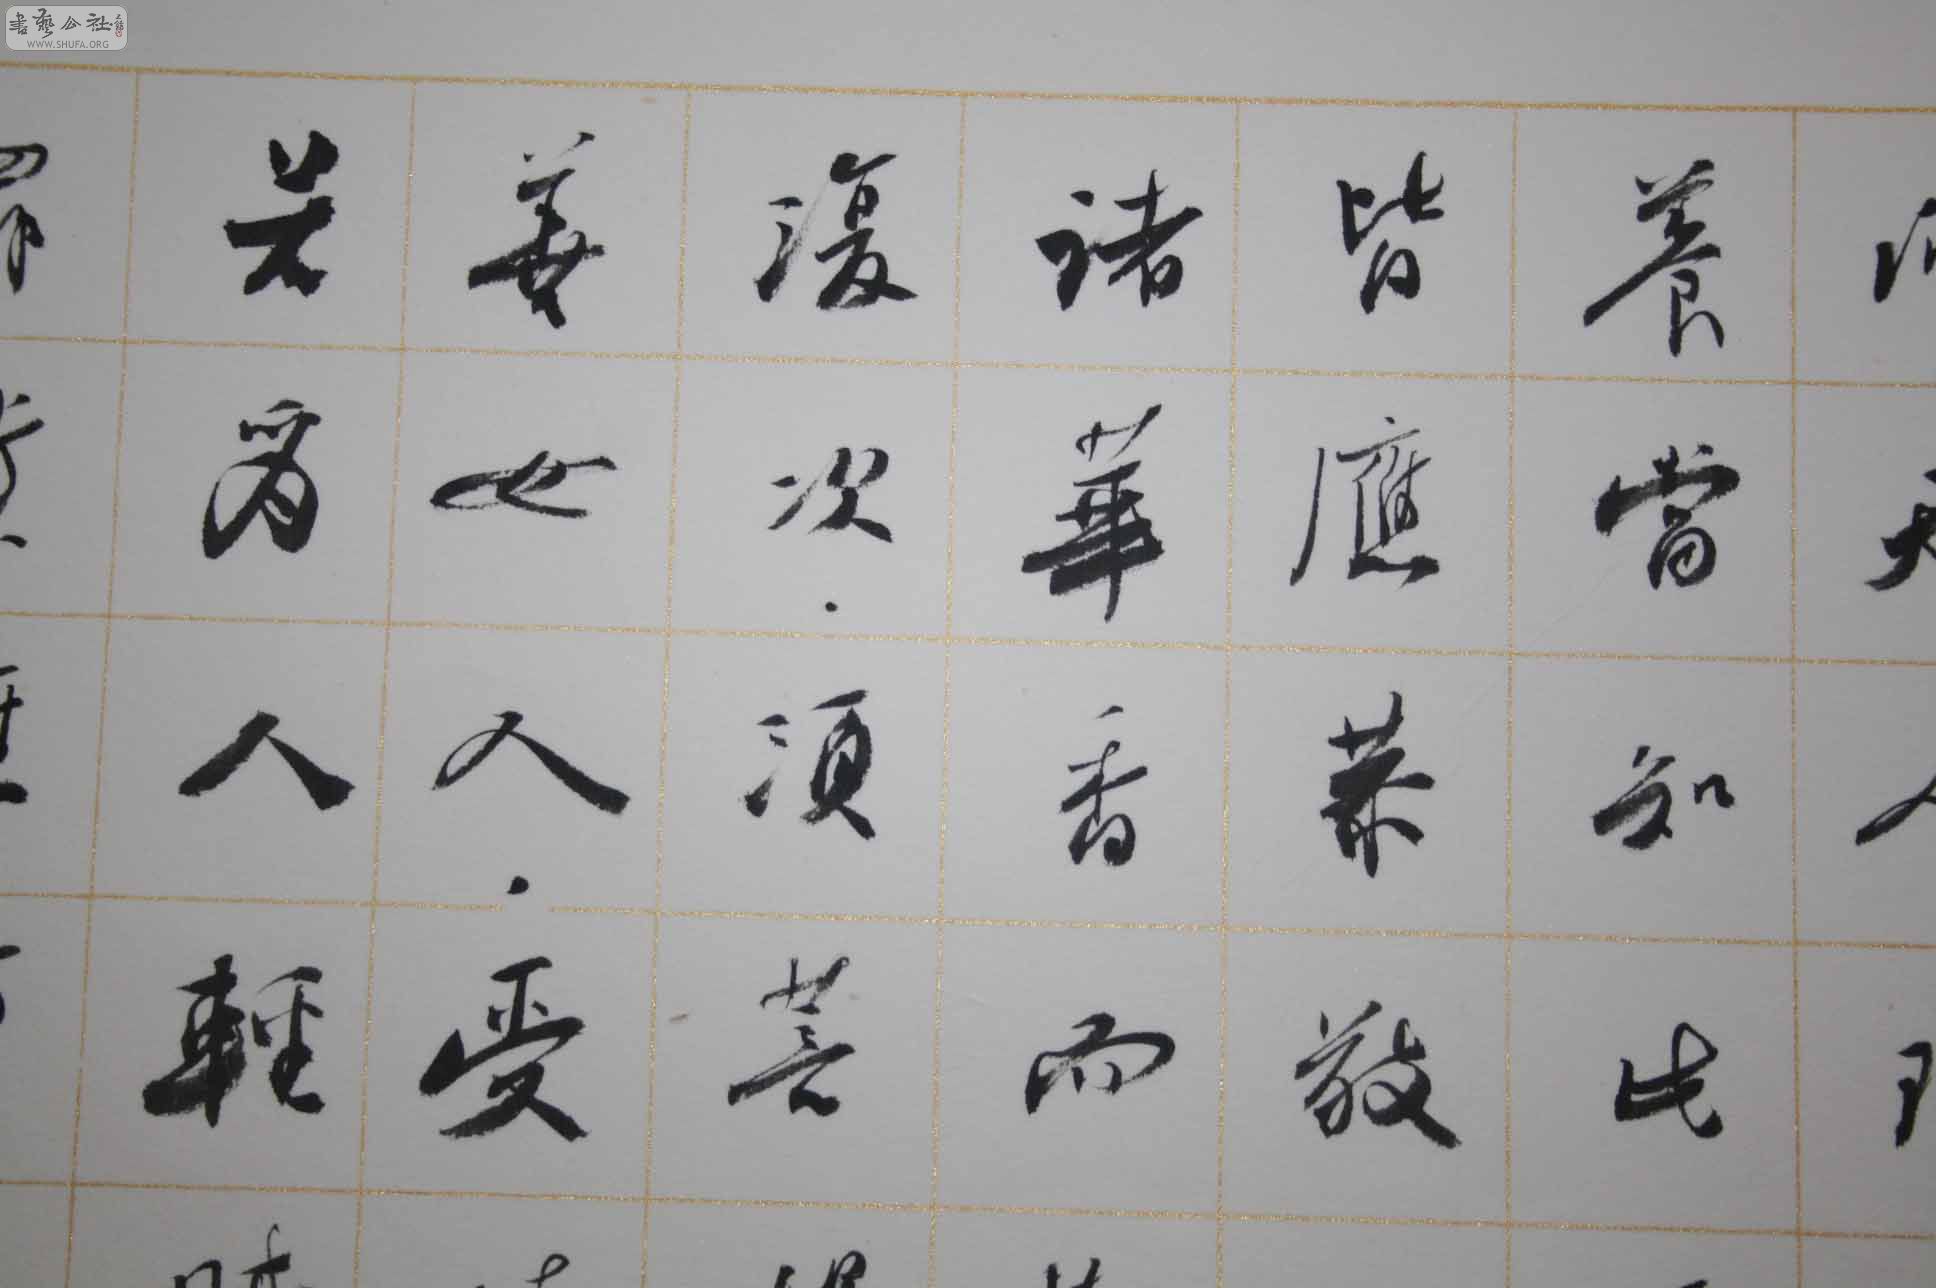 書藝公社
WWW.SHUFA.ORG
養當知此
皆應恭敬
諸華香而
復次須菩
善女人受
若為人輕